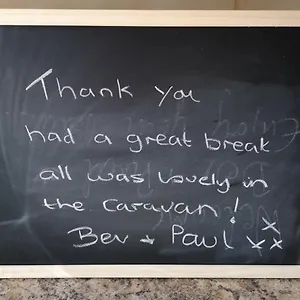 Thank you
had a great break
all was lovely in
the caravan!
Bev + Paul x
x x